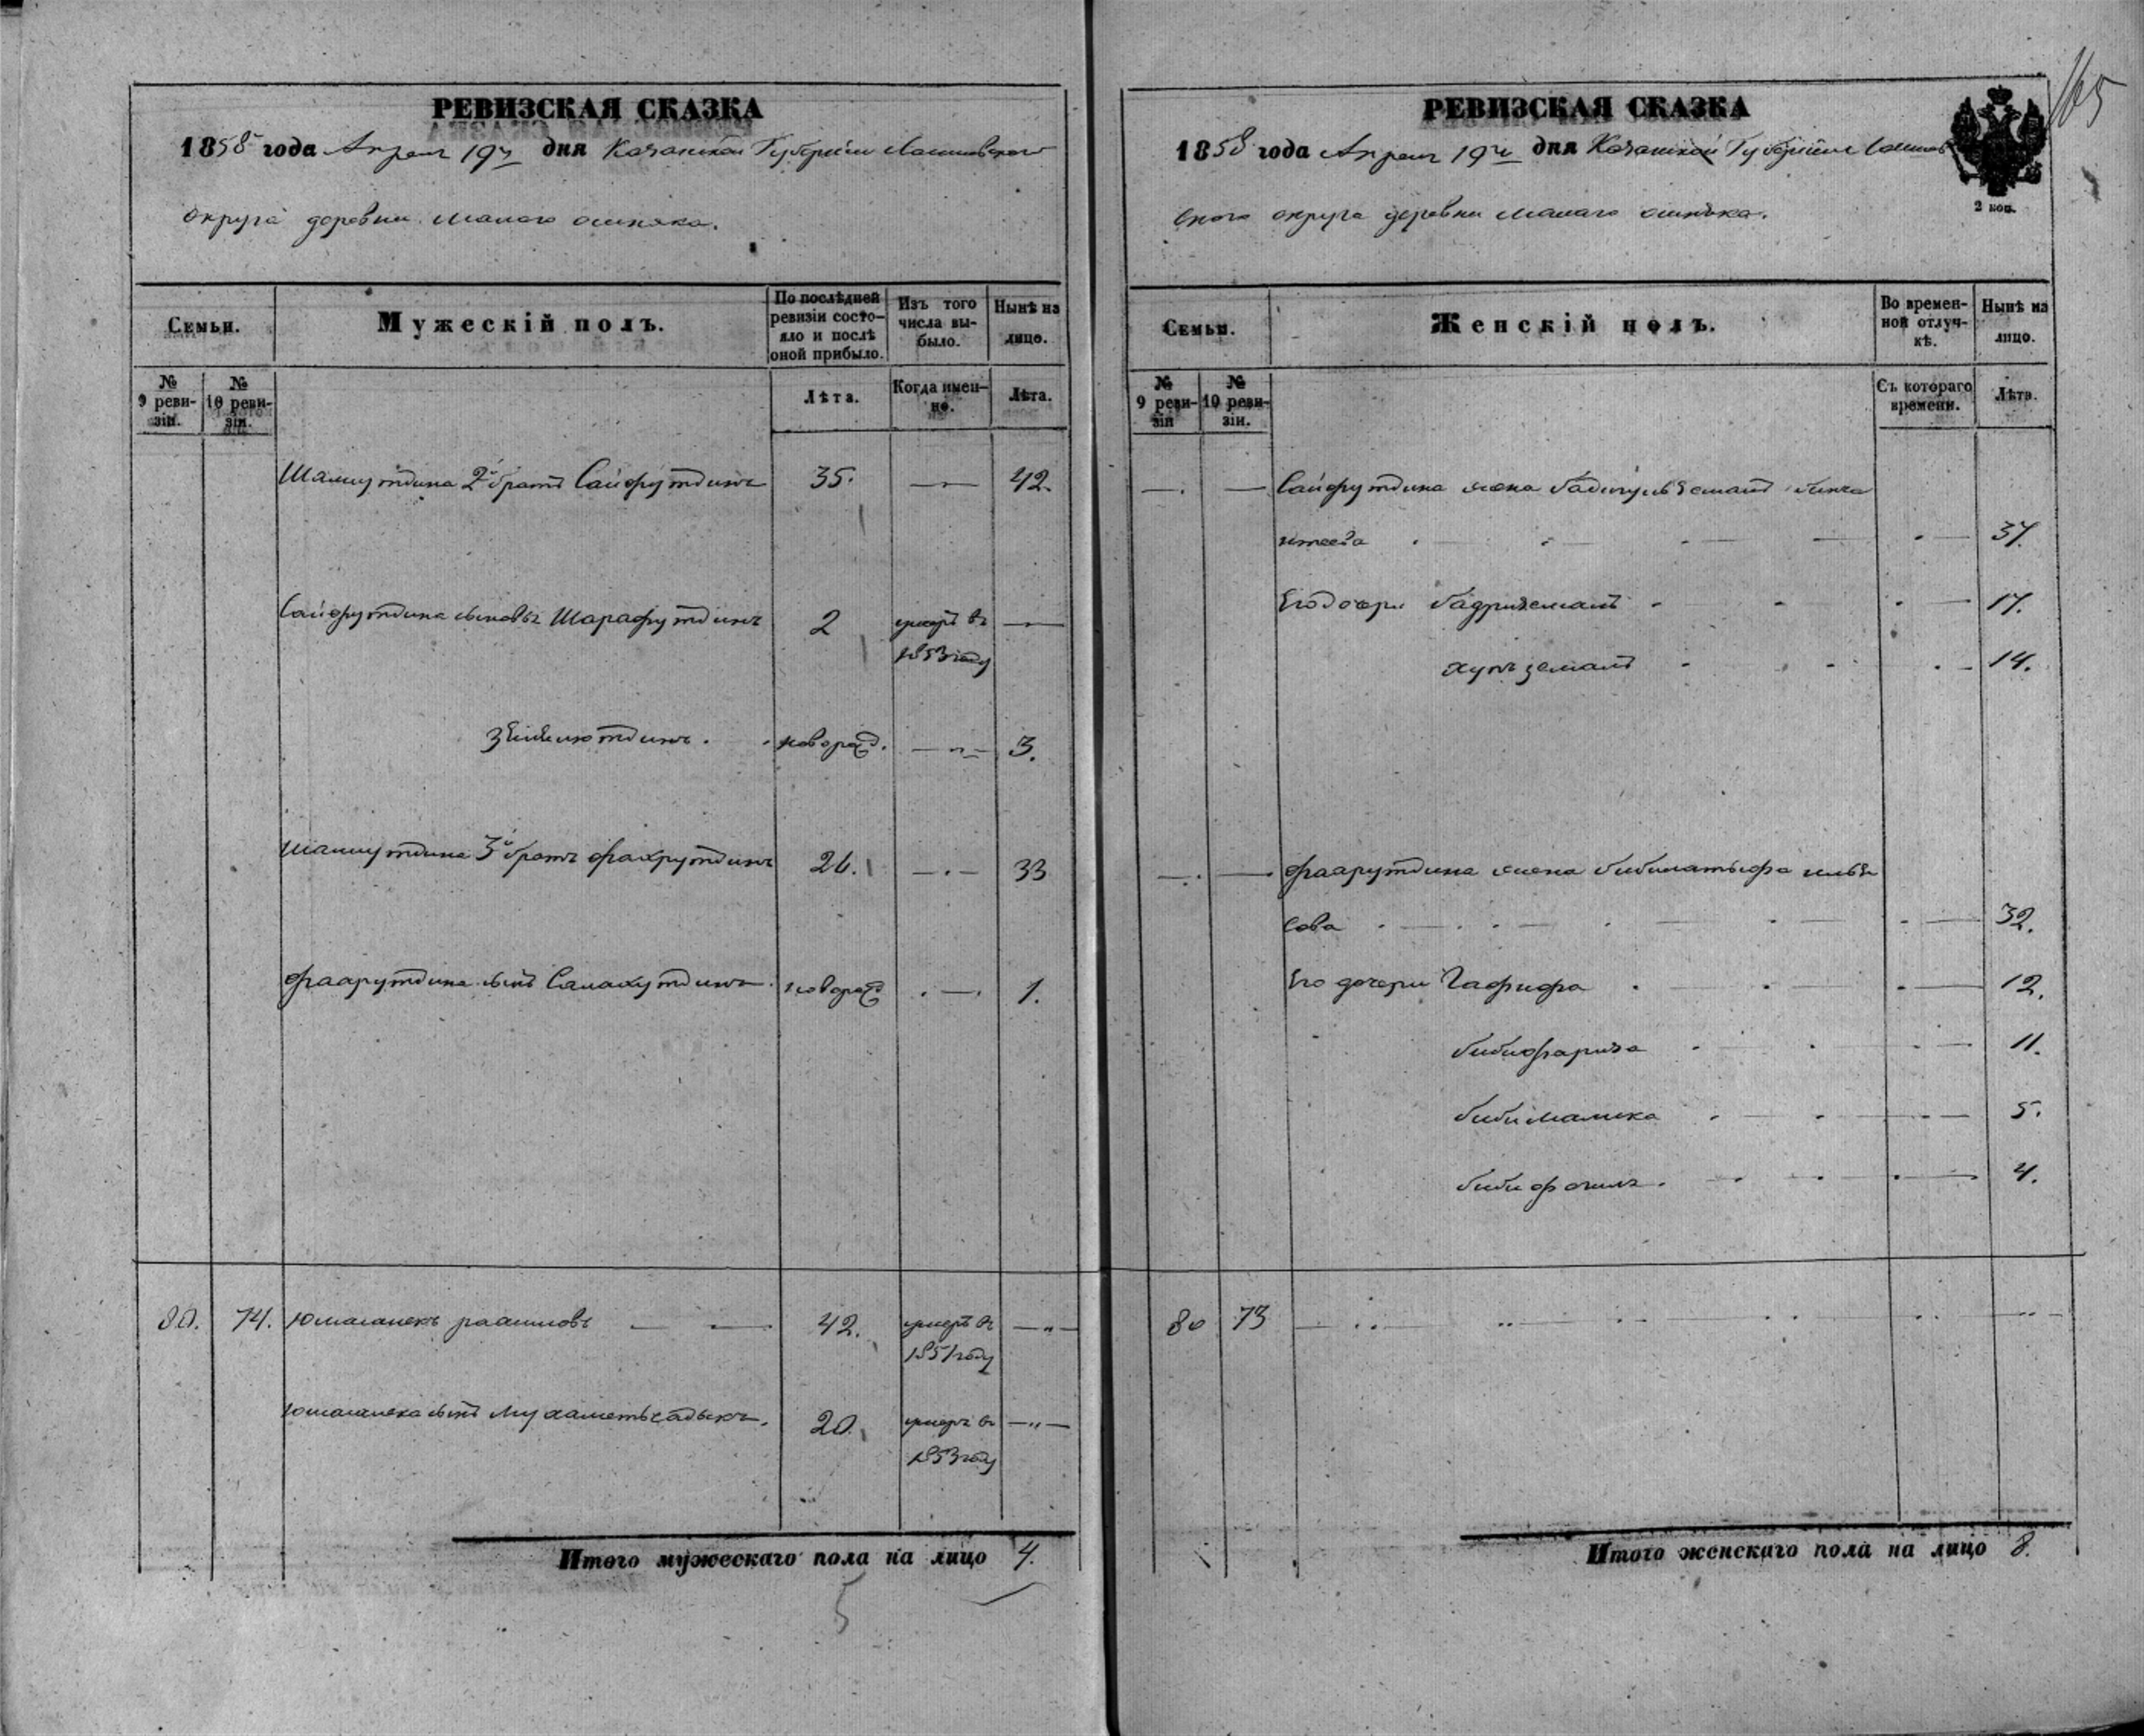 165
РЕВИЗСКАЯ СКАЗКА
1858 года Апреля 19го дня Казанской Губернии Лаишевского
округа деревни малаго ошняка.
Семьи.
Мужескій полъ.
По послѣдней ревизіи состояло и послѣ оной прибыло.
Изъ того числа выбыло.
Нынѣ на лицо.
№ 9 ревизіи.
№ 10 ревизіи.
Лѣта.
Когда именно.
Лѣта.
Шамсутдина 2й братъ Сайфутдинъ 35. 42.
Сайфутдина сыновья Шарафутдинъ 2 умеръ въ
1853 году
новорож. 3.
Шамсутдина 3й братъ фахрутдинъ 26. 33
фаарутдина сынъ Салахутдинъ новорож 1.
80. 74. Юмаганекъ раашовъ 42. умеръ въ
1851 году
юмаганека сынъ Мухаметьсадыкъ. 20. умеръ въ
1853 году
Итого мужескаго пола на лицо 4.
5
РЕВИЗСКАЯ СКАЗКА
1858 года Апреля 19го дня Казанской Губернии Лаишев
2 коп.
скаго округа деревни малаго ошняка.
Семьи.
Женскій полъ.
Во временной отлучкѣ.
Нынѣ на лицо.
№ 9 ревизіи
№ 10 ревизіи.
Съ котораго времени.
Лѣта.
Сайфутдина жена
37.
Его дочери бадриземалъ 17.
14.
фаарутдина жена бибилатыфа ильѣ
сова 32.
Его дочери Гафифа 12.
бибифариза 11.
бибималика 5.
4.
80 73
Итого женскаго пола на лицо 8.